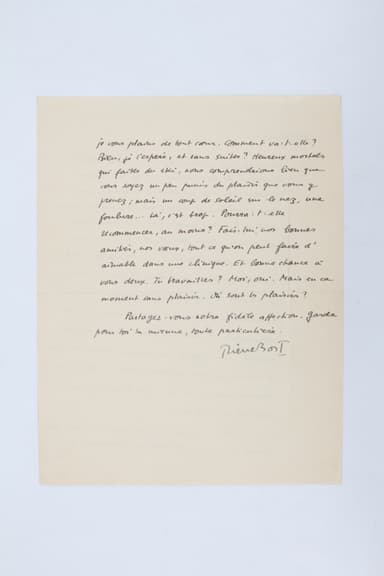 je vous plains de tout cœur. Comment va-t-elle ?
Bien, je l'espère, et sans suites ? Heureux mortels
qui faites du ski, nous comprendrions bien que
vous soyez un peu punis du plaisir que vous y
prenez ; mais un coup de soleil sur le nez, une
foulure... Là, c'est trop. Pourra-t-elle
recommencer, au moins ? Fais-lui nos bonnes
amitiés, nos vœux, tout ce qu'on peut faire d'
aimable dans une clinique. Et bonne chance à
vous deux. Tu travailles ? Moi, oui. Mais en ce
moment sans plaisir. Où sont les plaisirs ?
Partagez-vous notre fidèle affection. Garde
pour toi la mienne, toute particulière.
Pierre Bost